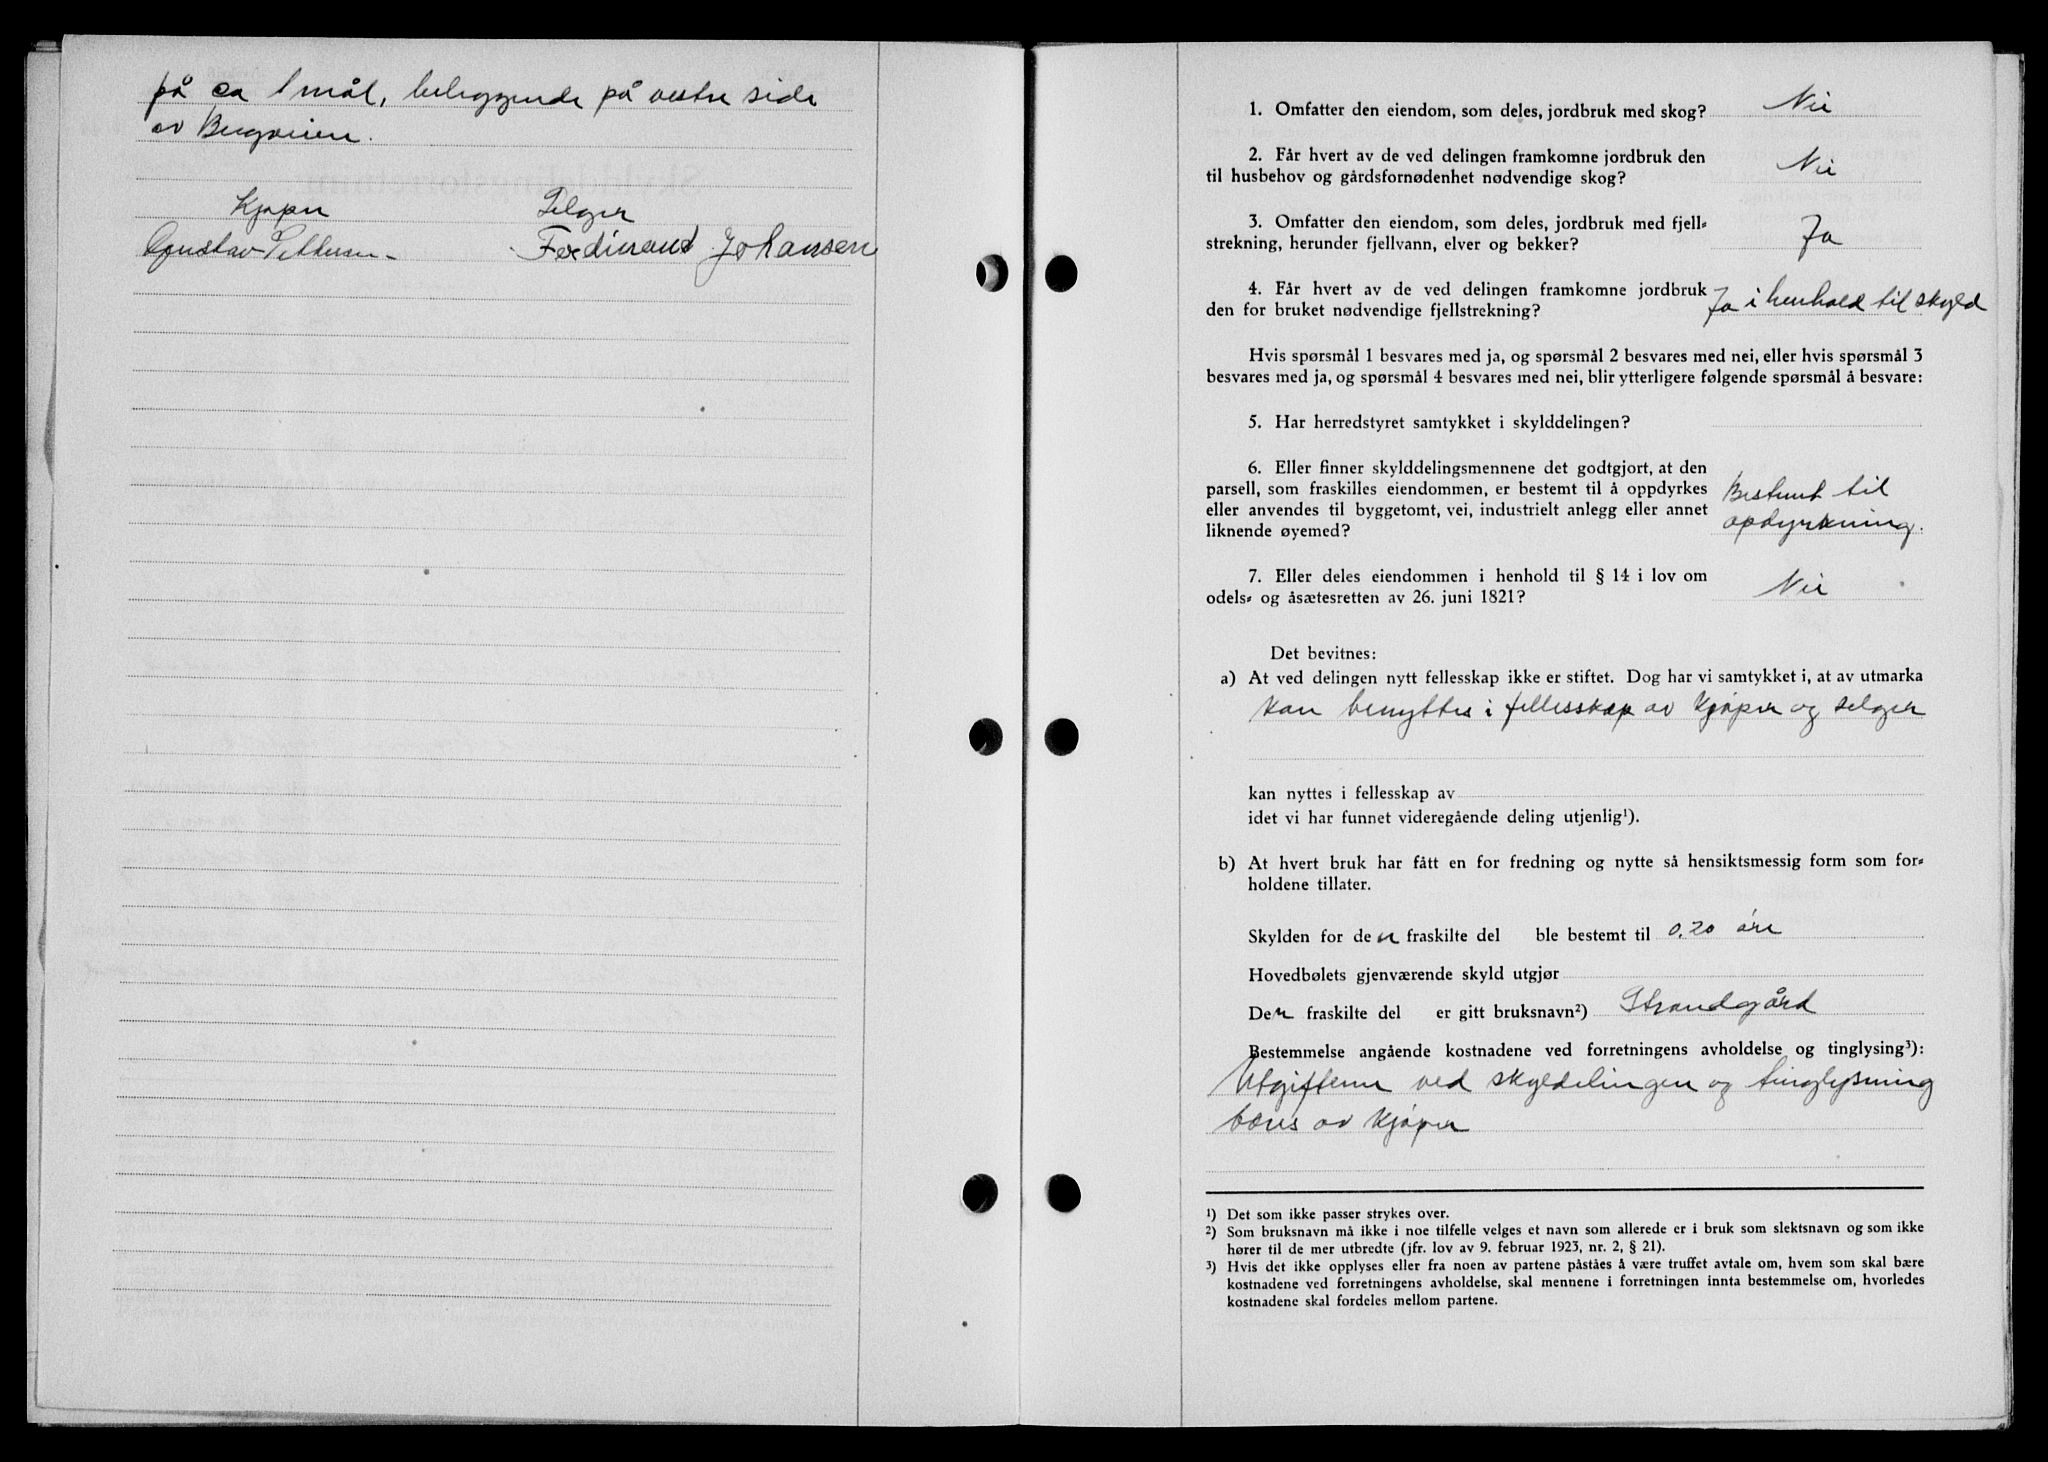 på ca 1 mål, beliggende på vestre side
av Bergveien.
Kjøper Selger
Gustav Pettersen Ferdinand Johansen
1. Omfatter den eiendom, som deles, jordbruk med skog? Nei
2. Får hvert av de ved delingen framkomne jordbruk den
til husbehov og gårdsfornødenhet nødvendige skog? Nei
3. Omfatter den eiendom, som deles, jordbruk med fjell-
strekning, herunder fjellvann, elver og bekker? Ja
4. Får hvert av de ved delingen framkomne jordbruk
den for bruket nødvendige fjellstrekning? Ja i henhold til skyld
Hvis spørsmål 1 besvares med ja, og spørsmål 2 besvares med nei, eller hvis spørsmål 3
besvares med ja, og spørsmål 4 besvares med nei, blir ytterligere følgende spørsmål å besvare:
5. Har herredstyret samtykket i skylddelingen?
6. Eller finner skylddelingsmennene det godtgjort, at den
parsell, som fraskilles eiendommen, er bestemt til å oppdyrkes
eller anvendes til byggetomt, vei, industrielt anlegg eller annet
liknende øyemed?
Bestemt til
opdyrkning.
7. Eller deles eiendommen i henhold til § 14 i lov om
odels- og åsætesretten av 26. juni 1821? Nei
Det bevitnes:
a) At ved delingen nytt fellesskap ikke er stiftet. Dog har vi samtykket i, at av utmarka
kan benyttes i fellesskap av kjøper og selger
kan nyttes i fellesskap av
idet vi har funnet videregående deling utjenlig¹).
b) At hvert bruk har fått en for fredning og nytte så hensiktsmessig form som for-
holdene tillater.
Skylden for den fraskilte del ble bestemt til 0.20 øre
Hovedbølets gjenværende skyld utgjør
Den fraskilte del er gitt bruksnavn²) Strandgård
Bestemmelse angående kostnadene ved forretningens avholdelse og tinglysing³):
Utgiftene ved skyldelingen og tinglysning
bæres av kjøper
¹) Det som ikke passer strykes over.
²) Som bruksnavn må ikke i noe tilfelle velges et navn som allerede er i bruk som slektsnavn og som ikke
hører til de mer utbredte (jfr. lov av 9. februar 1923, nr. 2, § 21).
³) Hvis det ikke opplyses eller fra noen av partene påståes å være truffet avtale om, hvem som skal bære
kostnadene ved forretningens avholdelse, skal mennene i forretningen innta bestemmelse om, hvorledes
kostnadene skal fordeles mellom partene.